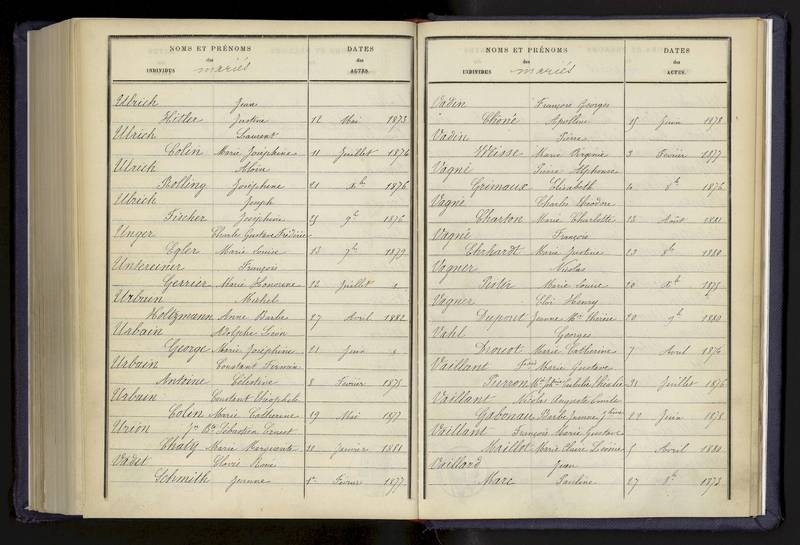 NOMS ET PRÉNOMS DATES
des des
INDIVIDUS mariés ACTES.
Ulrich Jean
Hitler Justine 12 Mai 1873
Ulrich Laurent
Colin Marie Joséphine 11 Juillet 1876
Ulrich Aloïse
Bolling Joséphine 21 Xbre 1876
Ulrich Joseph
Fischer Joséphine 25 9bre 1876
Unger Charles Gustave Frédéric
Egler Marie Louise 13 7bre 1879
Untereiner François
Gerrier Marie Honorine 12 Juillet
Urbain Michel
Holtzmann Anne Barbe 27 Avril 1882
Urbain Adolphe Léon
George Marie Joséphine 21 Juin
Urbain Constant Firmin
Antoine Célestine 8 Février 1875
Urbain Constant Théophile
Colin Marie Catherine 19 Mai 1877
Urion Jn Bte Sébastien Ernest
Chaty Marie Marguerite Janvier 1881
Vadet Clovis René
Schmith Jeanne 1er Février 1877
NOMS ET PRÉNOMS DATES
des des
INDIVIDUS mariés ACTES.
Vadin François Georges
Clioné Apolline 15 Juin 1878
Vadin Pierre
Wisse Marie Virginie 3 Février 1877
Vagné Pierre Alphonse
Gremaux Elisabeth 8bre 1876
Vagné Charles Théodore
Charton Marie Charlotte 13 Août 1881
Vagné François
Ehrhardt Marie Justine 23 8bre 1880
Vagner Nicolas
Pister Marie Louise 20 Xbre 1875
Vagner Eloi Henry
Dupont Jeanne Mie Thérèse 20 9bre 1880
Vahl Georges
Drouot Marie Catherine 7 Avril 1876
Vaillant Marie Gustave
Pierron 31 Juillet 1876
Vaillant Nicolas Auguste Emile
Gabonau Barbe Jeanne 22 Juin 1878
Vaillant François Marie Gustave
Maillot Marie Claire Léonie 5 Avril 1880
Vaillard Jean
Marc Pauline 27 8bre 1873